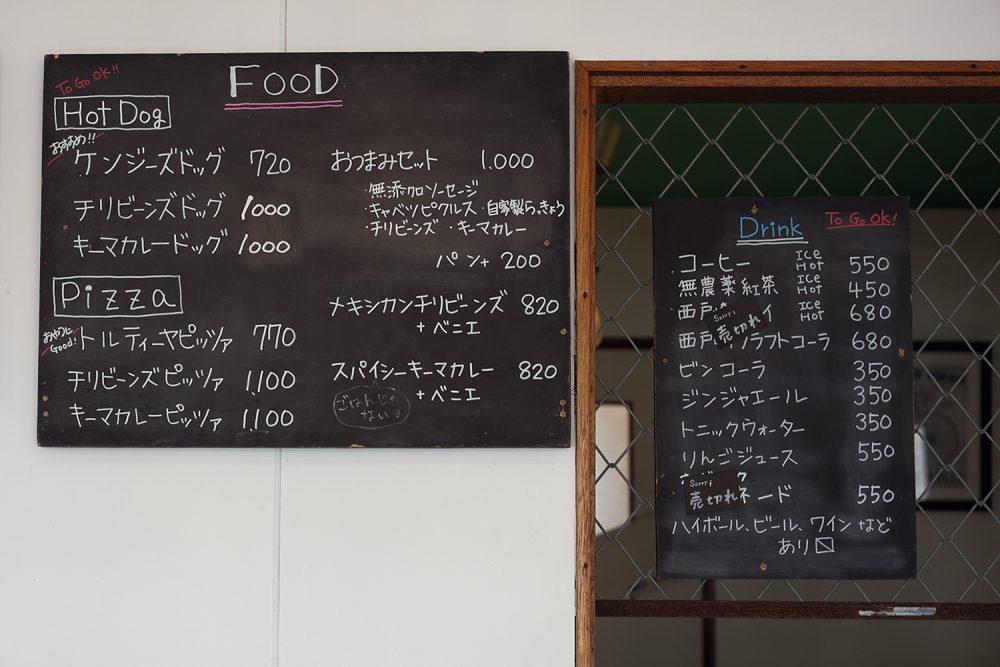 FOOD
To Go OK!!
Hot Dog
おすすめ!!
ケンジーズドッグ 720
チリビーンズドッグ 1000
キーマカレードッグ 1000
Pizza
おやつに
Good!
トルティーヤピッツァ 770
チリビーンズピッツァ 1,100
キーマカレーピッツァ 1,100
おつまみセット 1.000
・無添クロソーセージ
・キャベツピクルス・自家製らっきょう
・チリビーンズ・キーマカレー
パン+ 200
メキシカンチリビーンズ 820
+ペニエ
スパイシーキーマカレー 820
+ペニエ
ごはんじゃ
ないョ
Drink
To Go OK!
コーヒー Ice Hot 550
無農薬紅茶 Ice Hot 450
西戸 イ Ice Hot 680
Sorry!
売切れ
西戸 クラフトコーラ 680
ビンコーラ 350
ジンジャエール 350
トニックウォーター 350
りんごジュース 550
Sorry!
売切れ
ネード 550
ハイボール、ビール、ワインなど
あり